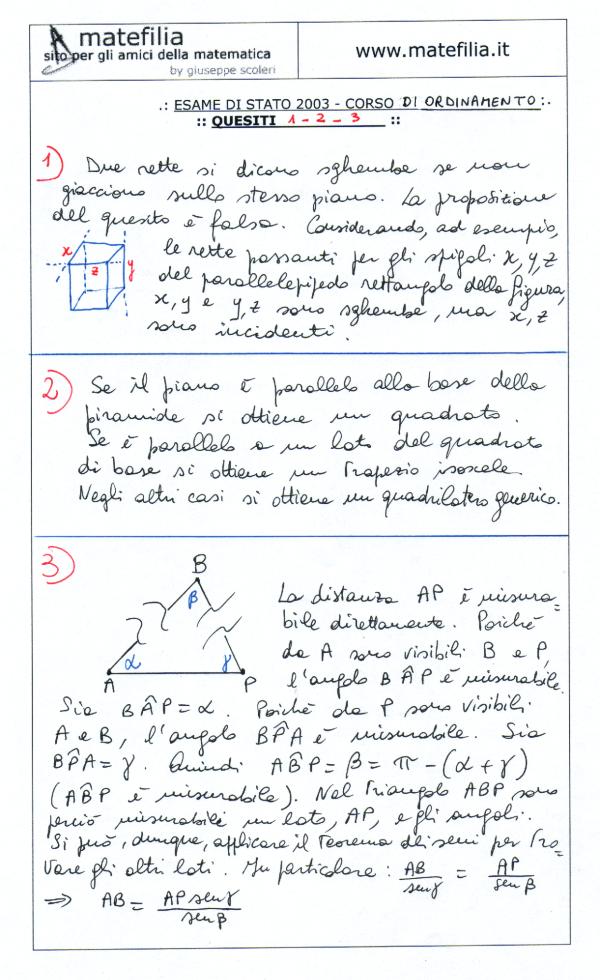 matefilia
sito per gli amici della matematica
by giuseppe scoleri
www.matefilia.it
.: ESAME DI STATO 2003 - CORSO DI ORDINAMENTO :.
:: QUESITI 1 - 2 - 3 ::
1) Due rette si dicono sghembe se non
giacciono sullo stesso piano. La proposizione
del quesito è falsa. Considerando, ad esempio,
le rette passanti per gli spigoli x, y, z
del parallelepipedo rettangolo della figura,
x, y e y, z sono sghembe, ma x, z
sono incidenti.
x
z
y
2) Se il piano è parallelo alla base della
piramide si ottiene un quadrato.
Se è parallelo a un lato del quadrato
di base si ottiene un trapezio isoscele.
Negli altri casi si ottiene un quadrilatero generico.
3)
B
β
α
γ
A
P
La distanza AP è misura=
bile direttamente. Poiché
da A sono visibili B e P,
l'angolo BÂP è misurabile.
Sia BÂP = α. Poiché da P sono visibili
A e B, l'angolo BP̂A è misurabile. Sia
BP̂A = γ. Quindi AB̂P = β = π - (α + γ)
(AB̂P è misurabile). Nel triangolo ABP sono
perciò misurabili un lato, AP, e gli angoli.
Si può, dunque, applicare il teorema dei seni per tro=
vare gli altri lati. In particolare: AB/senγ = AP/senβ
⇒ AB = AP senγ/senβ